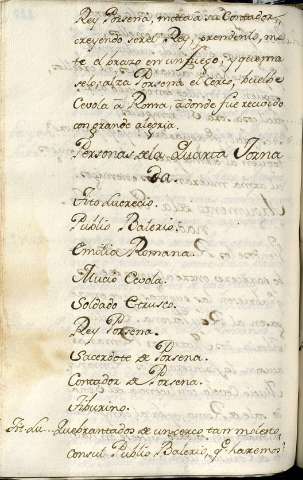 Rey Porsena, mata a su Contador
creyendo ser el Rey, prendenlo, me
te el brazo en un fuego, y quema
selo, alza Porsena el Cerco, buelbe
Cevola a Roma, adonde fue recivido
con grande alegria.
Personas de la Quarta Jorna
Da.
Tito Lucrecio.
Publio Balerio.
Emilia Romana.
Mucio Cevola.
Soldado Etrusco.
Rey Porsena.
Sacerdote de Porsena.
Contador de Porsena.
Tiburino.
Tit. Lu. Quebrantados de un cerco tan molesto,
Consul Publio Balerio, q.e haremos?